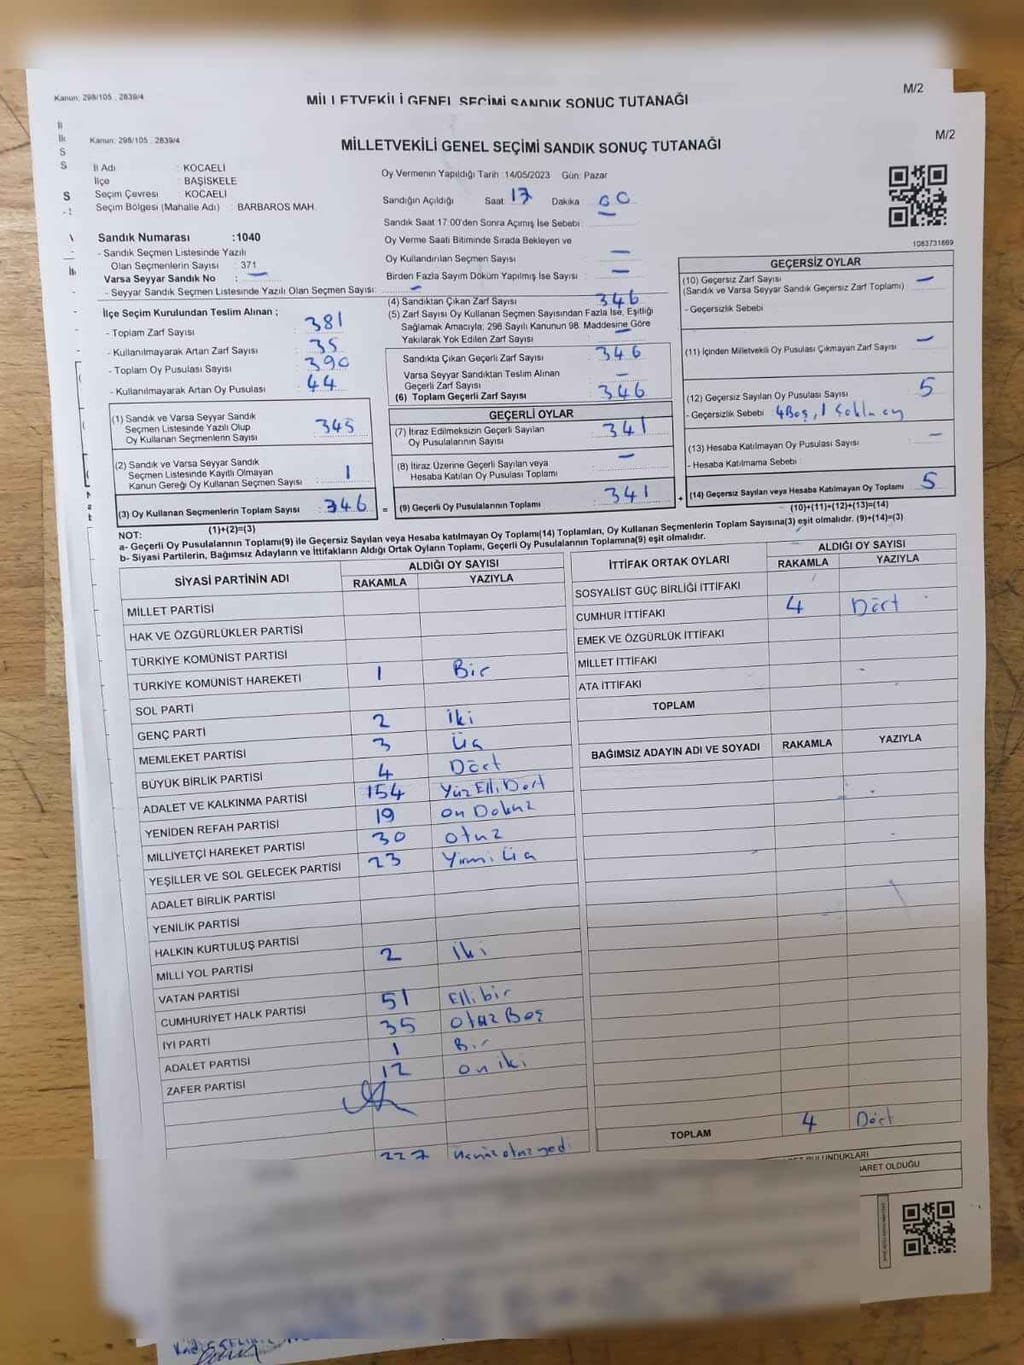 Kanun: 298/105 , 2839/4
M/2
MİLLETVEKİLİ GENEL SEÇİMİ SANDIK SONUÇ TUTANAĞI
Kanun: 298/105 , 2839/4
M/2
MİLLETVEKİLİ GENEL SEÇİMİ SANDIK SONUÇ TUTANAĞI
İl Adı : KOCAELİ
İlçe : BAŞİSKELE
Seçim Çevresi : KOCAELİ
Seçim Bölgesi (Mahalle Adı) : BARBAROS MAH.
Sandık Numarası :1040
- Sandık Seçmen Listesinde Yazılı
Olan Seçmenlerin Sayısı : 371
Varsa Seyyar Sandık No : —
- Seyyar Sandık Seçmen Listesinde Yazılı Olan Seçmen Sayısı: —
Oy Vermenin Yapıldığı Tarih :14/05/2023 Gün: Pazar
Sandığın Açıldığı Saat 17 Dakika 00
Sandık Saat 17:00'den Sonra Açımış İse Sebebi : —
Oy Verme Saati Bitiminde Sırada Bekleyen ve
Oy Kullandırılan Seçmen Sayısı : —
Birden Fazla Sayım Döküm Yapılmış İse Sayısı : —
1083731669
İlçe Seçim Kurulundan Teslim Alınan ;
- Toplam Zarf Sayısı : 381
- Kullanılmayarak Artan Zarf Sayısı : 35
- Toplam Oy Pusulası Sayısı : 390
- Kullanılmayarak Artan Oy Pusulası : 44
(1) Sandık ve Varsa Seyyar Sandık
Seçmen Listesinde Yazılı Olup
Oy Kullanan Seçmenlerin Sayısı : 345
(2) Sandık ve Varsa Seyyar Sandık
Seçmen Listesinde Kayıtlı Olmayan
Kanun Gereği Oy Kullanan Seçmen Sayısı : 1
(3) Oy Kullanan Seçmenlerin Toplam Sayısı : 346
(1)+(2)=(3)
(4) Sandıktan Çıkan Zarf Sayısı : 346
(5) Zarf Sayısı Oy Kullanan Seçmen Sayısından Fazla İse, Eşitliği
Sağlamak Amacıyla; 298 Sayılı Kanunun 98. Maddesine Göre
Yakılarak Yok Edilen Zarf Sayısı : —
Sandıkta Çıkan Geçerli Zarf Sayısı : 346
Varsa Seyyar Sandıktan Teslim Alınan
Geçerli Zarf Sayısı : —
(6) Toplam Geçerli Zarf Sayısı : 346
GEÇERLİ OYLAR
(7) İtiraz Edilmeksizin Geçerli Sayılan
Oy Pusulalarının Sayısı : 341
(8) İtiraz Üzerine Geçerli Sayılan veya
Hesaba Katılan Oy Pusulası Toplamı : —
= (9) Geçerli Oy Pusulalarının Toplamı : 341
GEÇERSİZ OYLAR
(10) Geçersiz Zarf Sayısı : —
(Sandık ve Varsa Seyyar Sandık Geçersiz Zarf Toplamı)
- Geçersizlik Sebebi :
(11) İçinden Milletvekili Oy Pusulası Çıkmayan Zarf Sayısı : —
(12) Geçersiz Sayılan Oy Pusulası Sayısı : 5
- Geçersizlik Sebebi : 4 Boş, 1
(13) Hesaba Katılmayan Oy Pusulası Sayısı : —
- Hesaba Katılmama Sebebi :
+ (14) Geçersiz Sayılan veya Hesaba Katılmayan Oy Toplamı : 5
(10)+(11)+(12)+(13)=(14)
NOT:
a- Geçerli Oy Pusulasının Toplamı(9) ile Geçersiz Sayılan veya Hesaba katılmayan Oy Toplamı(14) Toplamları, Oy Kullanan Seçmenlerin Toplam Sayısına(3) eşit olmalıdır. (9)+(14)=(3)
b- Siyasi Partilerin, Bağımsız Adayların ve İttifakların Aldığı Ortak Oyların Toplamı, Geçerli Oy Pusulalarının Toplamına(9) eşit olmalıdır.
SİYASİ PARTİNİN ADI
ALDIĞI OY SAYISI
RAKAMLA YAZIYLA
MİLLET PARTİSİ
HAK VE ÖZGÜRLÜKLER PARTİSİ
TÜRKİYE KOMÜNİST PARTİSİ
TÜRKİYE KOMÜNİST HAREKETİ 1 Bir
SOL PARTİ
GENÇ PARTİ 2 İki
MEMLEKET PARTİSİ 3 Üç
BÜYÜK BİRLİK PARTİSİ 4 Dört
ADALET VE KALKINMA PARTİSİ 154 Yüz Elli Dört
YENİDEN REFAH PARTİSİ 19 on Dokuz
MİLLİYETÇİ HAREKET PARTİSİ 30 otuz
YEŞİLLER VE SOL GELECEK PARTİSİ 23 Yirmi Üç
ADALET BİRLİK PARTİSİ
YENİLİK PARTİSİ
HALKIN KURTULUŞ PARTİSİ
MİLLİ YOL PARTİSİ 2 İki
VATAN PARTİSİ
CUMHURİYET HALK PARTİSİ 51 Elli bir
İYİ PARTİ 35 otuz Beş
ADALET PARTİSİ 1 Bir
ZAFER PARTİSİ 12 on iki
İTTİFAK ORTAK OYLARI
ALDIĞI OY SAYISI
RAKAMLA YAZIYLA
SOSYALİST GÜÇ BİRLİĞİ İTTİFAKI
CUMHUR İTTİFAKI 4 Dört
EMEK VE ÖZGÜRLÜK İTTİFAKI
MİLLET İTTİFAKI
ATA İTTİFAKI
TOPLAM
BAĞIMSIZ ADAYIN ADI VE SOYADI RAKAMLA YAZIYLA
TOPLAM 4 Dört
BULUNDUKLARI
İBARET OLDUĞU